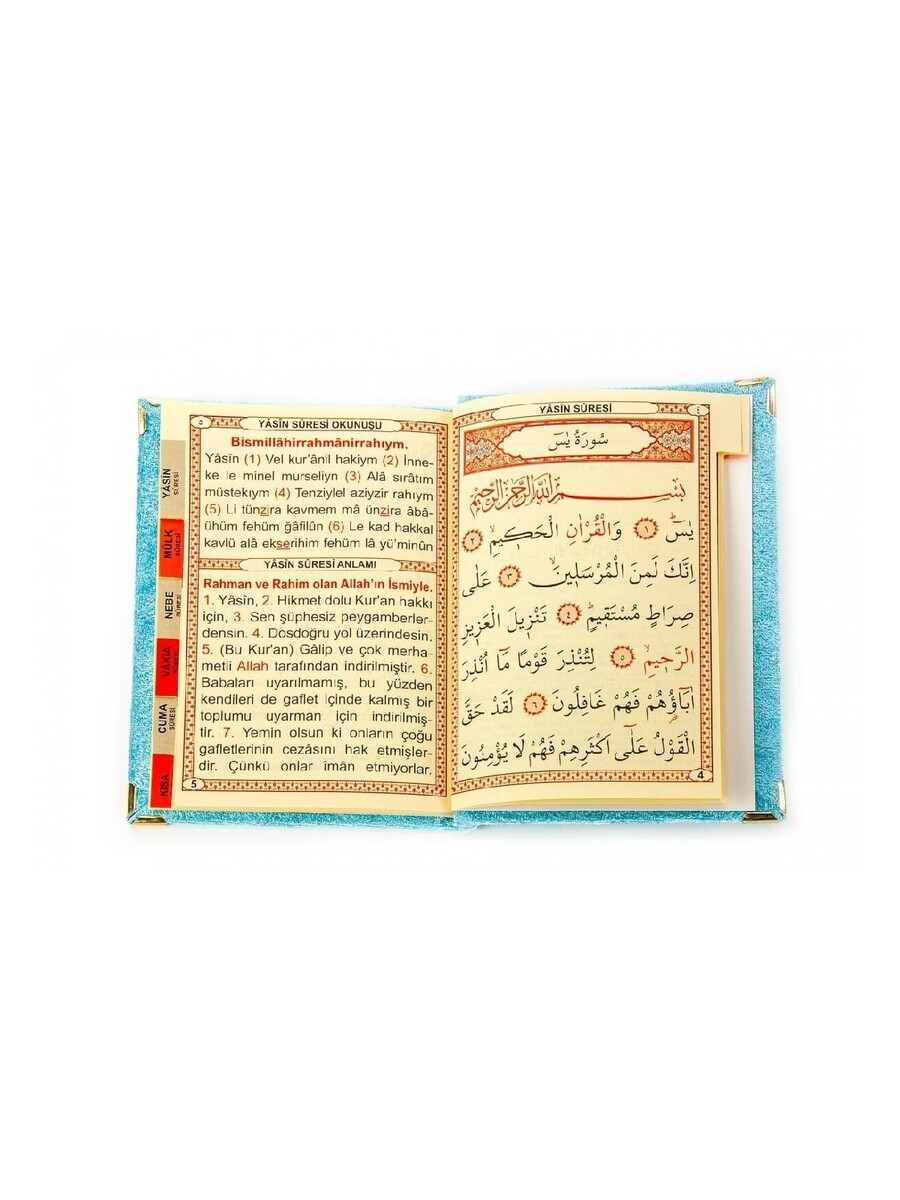 YÂSÎN SÛRESİ
٤
سُورَةُ يٰسٓ
بِسْمِ اللّٰهِ الرَّحْمٰنِ الرَّحٖيمِ
يٰسٓ ﴿١﴾ وَالْقُرْاٰنِ الْحَكٖيمِۙ ﴿٢﴾
اِنَّكَ لَمِنَ الْمُرْسَلٖينَۙ ﴿٣﴾ عَلٰى
صِرَاطٍ مُسْتَقٖيمٍۜ ﴿٤﴾ تَنْزٖيلَ الْعَزٖيزِ
الرَّحٖيمِۙ ﴿٥﴾ لِتُنْذِرَ قَوْمًا مَٓا اُنْذِرَ
اٰبَٓاؤُ۬هُمْ فَهُمْ غَافِلُونَ ﴿٦﴾ لَقَدْ حَقَّ
الْقَوْلُ عَلٰٓى اَكْثَرِهِمْ فَهُمْ لَا يُؤْمِنُونَ
4
٥
YÂSÎN SÛRESİ OKUNUŞU
Bismillâhirrahmânirrahıym.
Yâsîn (1) Vel kur'ânil hakiym (2) İnne-
ke le minel murseliyn (3) Alâ sırâtım
müstekıym (4) Tenziylel aziyzir rahıym
(5) Li tünzira kavmem mâ ünzira âbâ-
ühüm fehüm gâfilûn (6) Le kad hakkal
kavlü alâ ekserihim fehüm lâ yü'minûn
YÂSÎN SÛRESİ ANLAMI
Rahman ve Rahim olan Allah'ın İsmiyle.
1. Yâsîn, 2. Hikmet dolu Kur'an hakkı
için, 3. Sen şüphesiz peygamberler-
densin. 4. Dosdoğru yol üzerindesin.
5. (Bu Kur'an) Gâlip ve çok merha-
metli Allah tarafından indirilmiştir. 6.
Babaları uyarılmamış, bu yüzden
kendileri de gaflet içinde kalmış bir
toplumu uyarman için indirilmiş-
tir. 7. Yemin olsun ki onların çoğu
gafletlerinin cezâsını hak etmişler-
dir. Çünkü onlar îmân etmiyorlar.
5
YÂSİN
SÛRESİ
MÜLK
SÛRESİ
NEBE
SÛRESİ
VÂKIA
SÛRESİ
CUMA
SÛRESİ
KISA